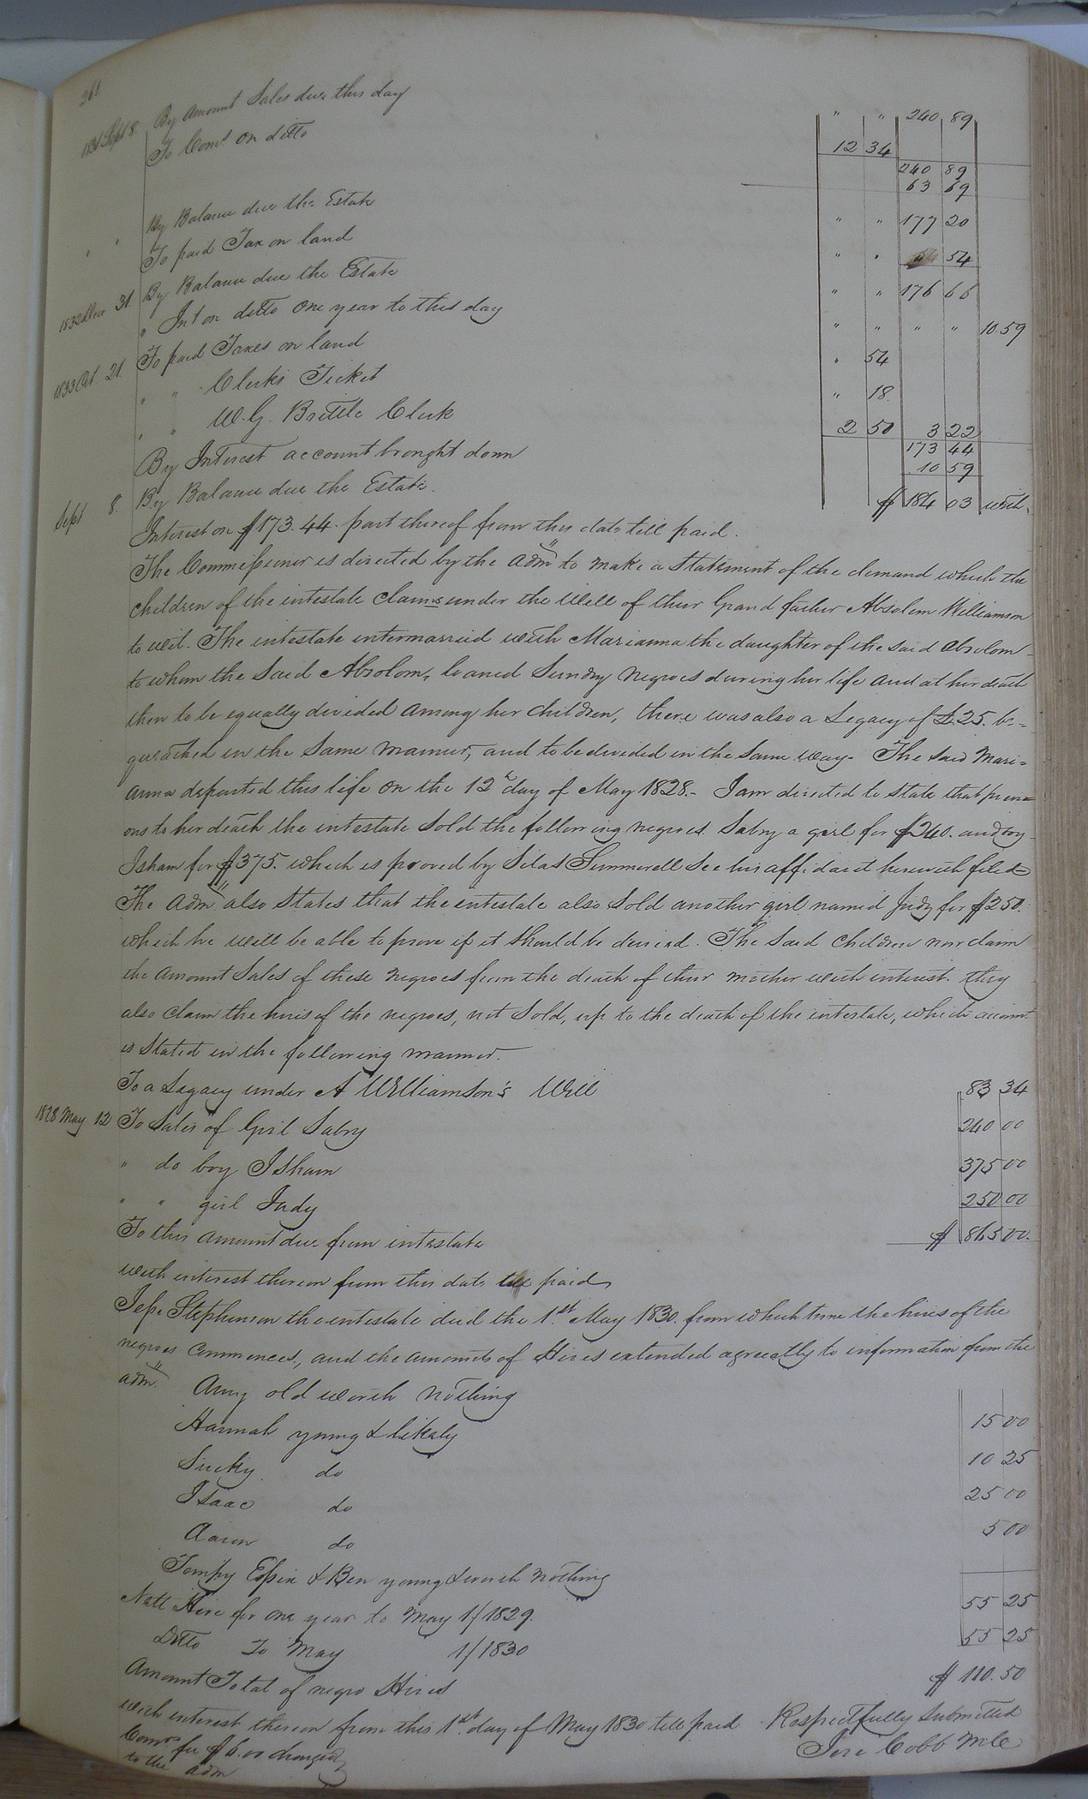 361
1831 Sept 8 By Amount Sales due this day " " 240 89
To Coms on ditto 12 34
240 89
63 69
" " By Balance due the Estate " " 177 20
To paid Tax on land " " 54
1832 Decr 31 By Balance due the Estate " " 176 66
" Int on ditto one year to this day " " " " 10.59
1833 Oct 21 To paid Taxes on land " 54
" " Clerks Ticket " 18
" " W. G. Brittle Clerk 2 50 3 22
173 44
By Interest account brought down 10 59
Sept 8 By Balance due the Estate. $ 184 03 with
Interest on $173.44 part thereof from this date till paid.
The Commissioner is directed by the adm to make a Statement of the demand which the
children of the intestate claims under the Will of their Grand father Absolem Williamson
to wit. The intestate intermarried with Marianna the daughter of the said Absolom
to whom the Said Absolom, loaned Sundry Negroes during her life and at her death
then to be equally divided among her children, there was also a Legacy of £25. be=
queathed in the Same manner, and to be divided in the Same way. The said Mari=
anna departed this life on the 12th day of May 1828.- I am directed to state that previ=
ous to her death the intestate Sold the following negroes. Sabry a girl for $240. and boy
Isham for $375. which is proved by Silas Summerell See his affidavit herewith filed
The adm also States that the intestate also Sold another girl named Judy for $250.
which he will be able to prove if it should be desired. The Said Children now claim
the amount Sales of these negroes from the death of their mother with interest. they
also claim the hires of the negroes, not Sold, up to the death of the intestate, which account
is Stated in the following manner.
To a Legacy under A Williamson's Will 83 34
1828 May 12 To Sales of Girl Sabry 240 00
" do boy Isham 375 00
" " girl Judy 250 00
To this Amount due from intestate $ 865 00.
with interest thereon from this date till paid
Jep. Stephenson the intestate died the 1st May 1830 from which time the hires of the
negroes Commences, and the amounts of Hires extended agreeably to information from the
adm. Amy old worth nothing
Hannah young & likely 15 00
Sucky do 10 25
Isaac do 25 00
Aaron do 5 00
Tempy Essix & Ben young & worth nothing
Nett Hire for one year to May 1/1829. 55 25
Ditto To May 1/1830 55 25
Amount Total of negro Hires $ 110.50
with interest thereon from this 1st day of May 1830 till paid Respectfully Submitted
Comrs fee $6.00 charged Jere Cobb M.C.
to the adm